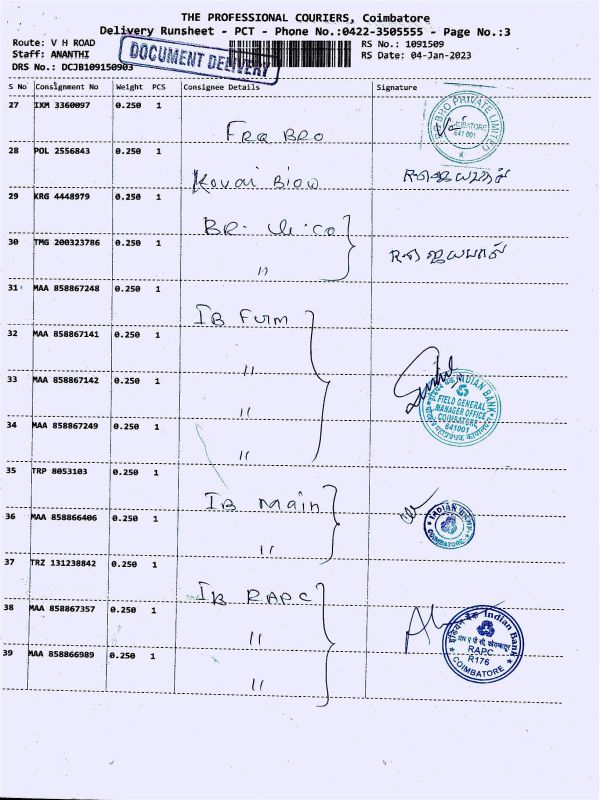 THE PROFESSIONAL COURIERS, Coimbatore
Delivery Runsheet - PCT - Phone No.:0422-3505555 - Page No.:3
Route: V H ROAD RS No.: 1091509
Staff: ANANTHI RS Date: 04-Jan-2023
DRS No.: DCJB109150903
DOCUMENT DELIVERY
S No Consignment No Weight PCS Consignee Details Signature
27 IXM 3360097 0.250 1
BRO PRIVATE LIMITED
COIMBATORE
641 001
28 POL 2556843 0.250 1
Kovai
29 KRG 4448979 0.250 1
30 TMG 200323786 0.250 1
"
31 MAA 858867248 0.250 1
IB
32 MAA 858867141 0.250 1
"
33 MAA 858867142 0.250 1
"
INDIAN BANK
FIELD GENERAL
MANAGER OFFICE
COIMBATORE
641001
34 MAA 858867249 0.250 1
"
35 TRP 8053103 0.250 1
IB Main
36 MAA 858866406 0.250 1
"
INDIAN BANK
COIMBATORE
37 TRZ 131238842 0.250 1
IB RAPC
38 MAA 858867357 0.250 1
"
इंडियन बैंक Indian Bank
RAPC
R176
COIMBATORE
39 MAA 858866989 0.250 1
"